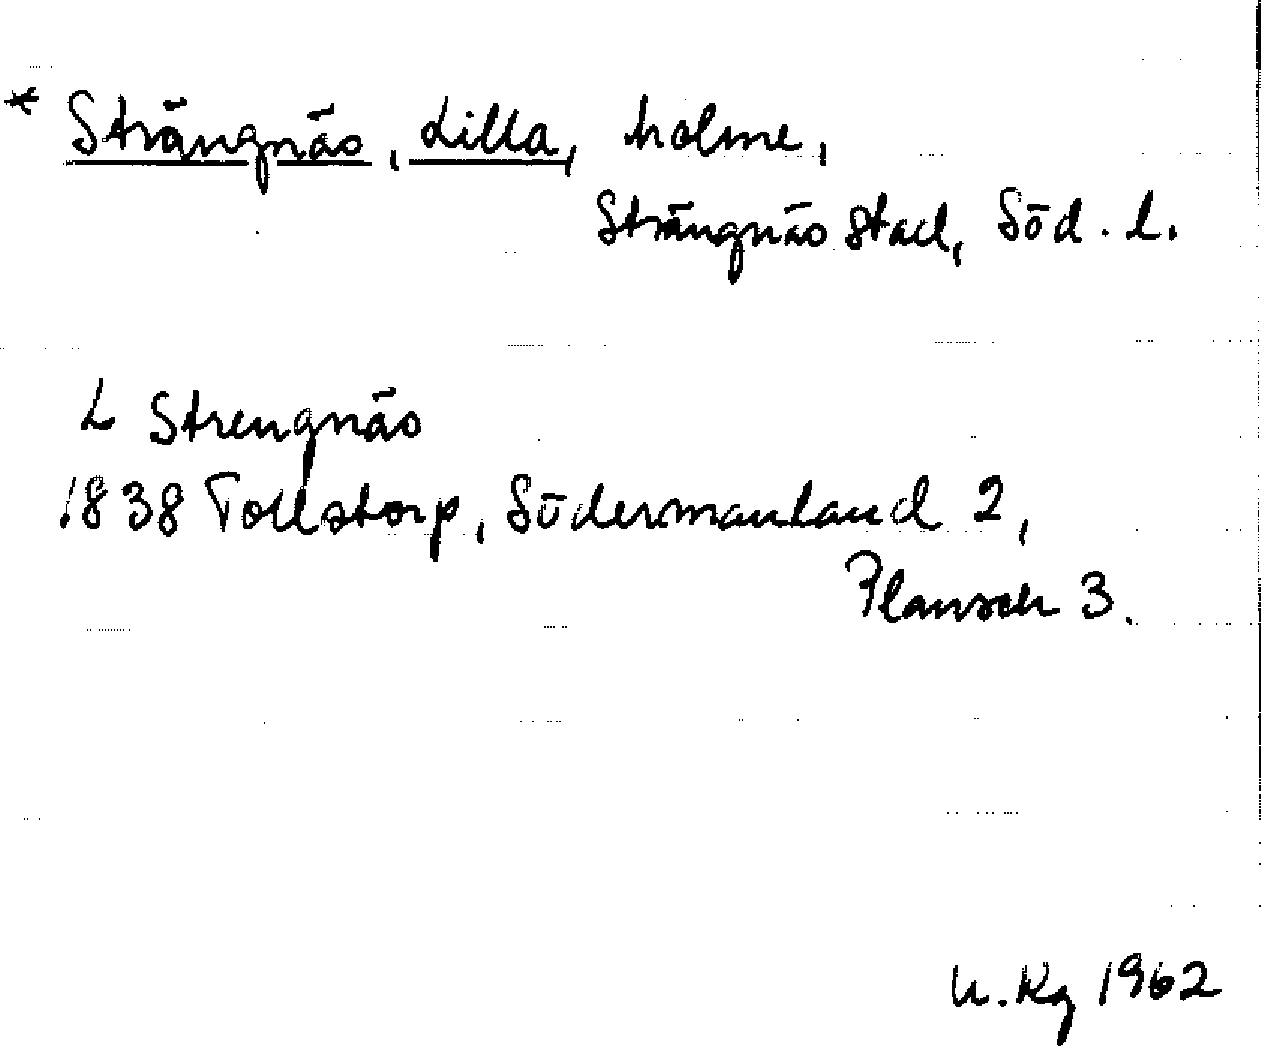 * Strängnäs, Lilla, holme,
Strängnäs stad, Söd. l.
L Strengnäs
1838 Tollstorp, Södermanland 2,
Plansch 3.
U. Kg 1962